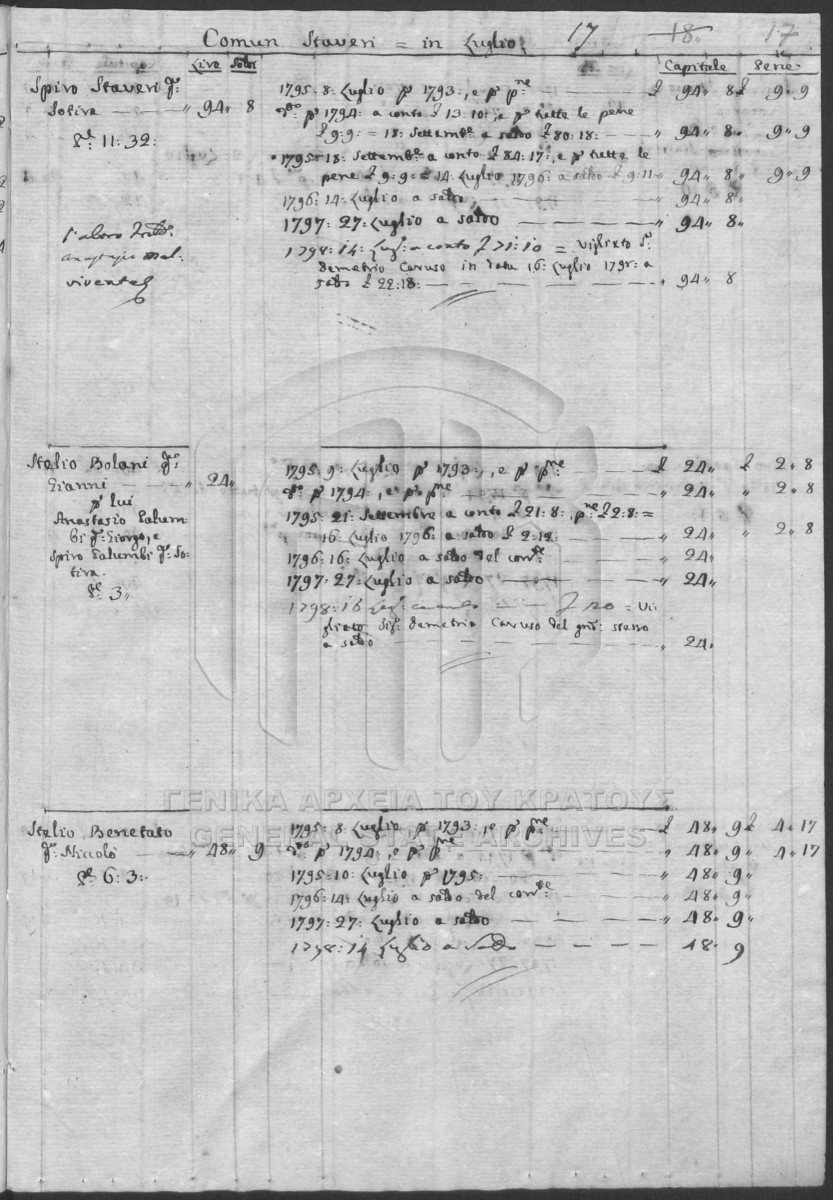 Comun Staveri = in Luglio 17 18 17
Lire Soldi Capitale Pene
Spiro Staveri q.m
Sotira " 94 " 8
11: 32:
1795: 8: Luglio p 1793:, e p pne £ 94 " 8 £ 9 " 9
p 1794: a conto £ 13:10:, e p tutte le pene
£ 9:9: = 18: Settembe a saldo £ 80:18: " 94 " 8 " 9 " 9
1795: 18: Settembe a conto £ 84:17:, e p tutte le
pene £ 9:9: = 14: Luglio 1796: a saldo £ 9:11 " 94 " 8 " 9 " 9
1796: 14: Luglio a saldo " 94 " 8 "
1797: 27: Luglio a saldo " 94 " 8 "
1798: 14: Lugl: a conto £ 71:10 =
Demetrio Caruso in data 16: Luglio 1798: a
saldo £ 22:18: " 94 " 8
viventel
Stelio Bolani q.m
Gianni " 24 "
p lui
Anastasio Palum-
bi q.m Giorgo, e
Spiro Palumbi q.m So-
tira.
3 "
1795: 9: Luglio p 1793:, e p pne £ 24 " £ 2 " 8
p 1794:, e p pne " 24 " " 2 " 8
1795: 21: Settembre a conto £ 21:8:, pne £ 2:8: =
16: Luglio 1796: a saldo £ 2:12 " 24 " " 2 " 8
1796: 16: Luglio a saldo del conte " 24 "
1797: 27: Luglio a saldo " 24 "
1798: 16 Lugl: £ 20 = Vi-
glieto Sig: Demetrio Caruso del stesso
a saldo " 24 "
Stelio Benetato
q.m Niccolò " 48 " 9
6: 3:
1795: 8 Luglio p 1793:, e p pne £ 48 " 9 £ 4 " 17
p 1794:, e p pne " 48 " 9 " 4 " 17
1795: 10: Luglio p 1795: " 48 " 9 "
1796: 14: Luglio a saldo del conte " 48 " 9 "
1797: 27: Luglio a saldo " 48 " 9 "
1798: 14 Luglio a Saldo 48 " 9
ΓΕΝΙΚΑ ΑΡΧΕΙΑ ΤΟΥ ΚΡΑΤΟΥΣ
GENERAL STATE ARCHIVES